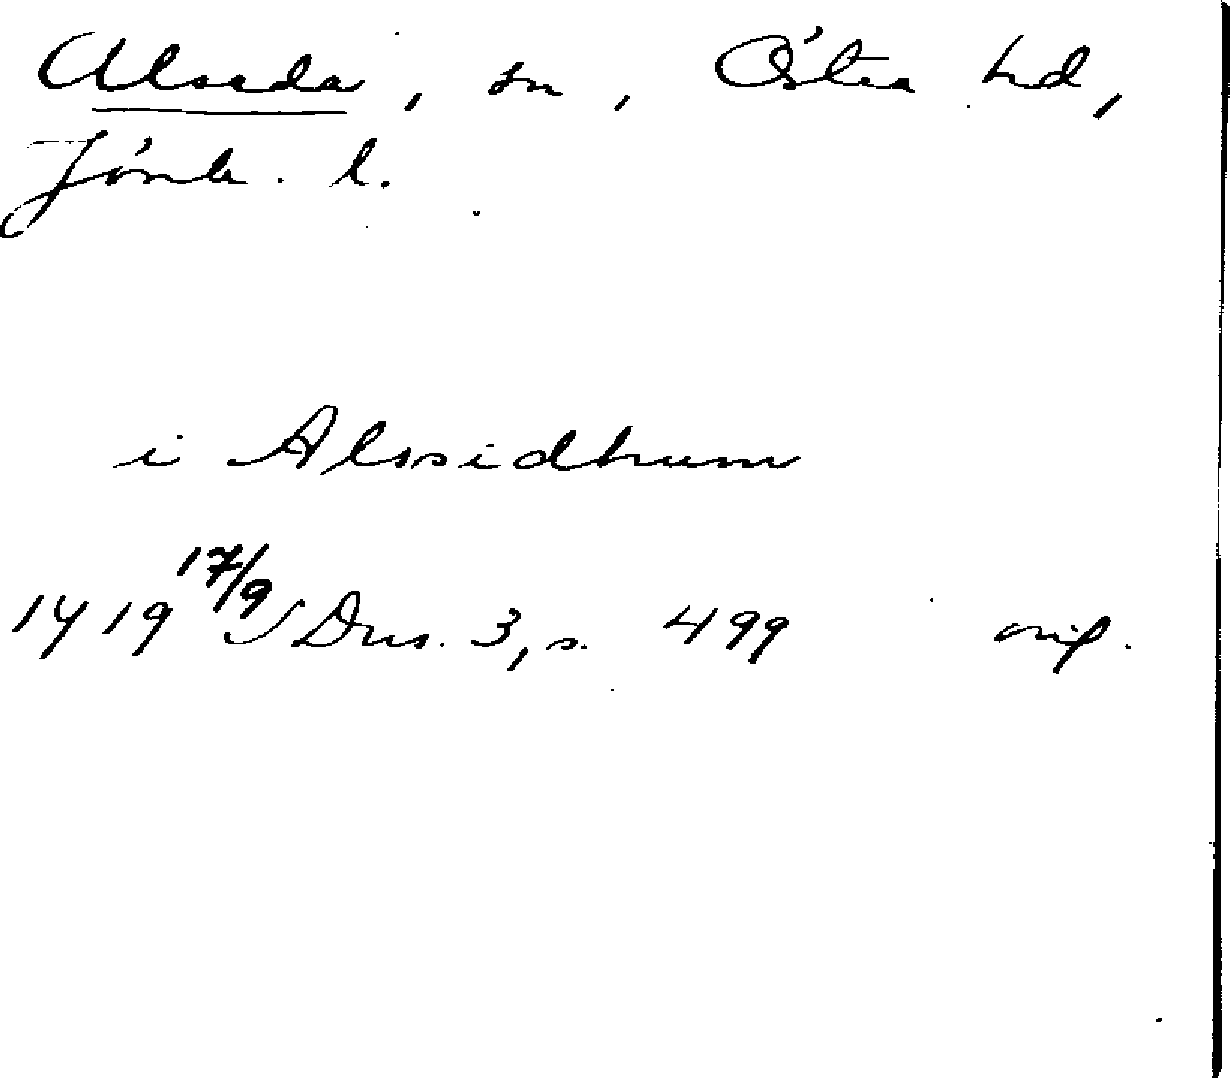 Alseda, sn, Östra hd,
Jönk. l.
i Alssidhum
1419 17/9 SDns. 3, s. 499 orig.